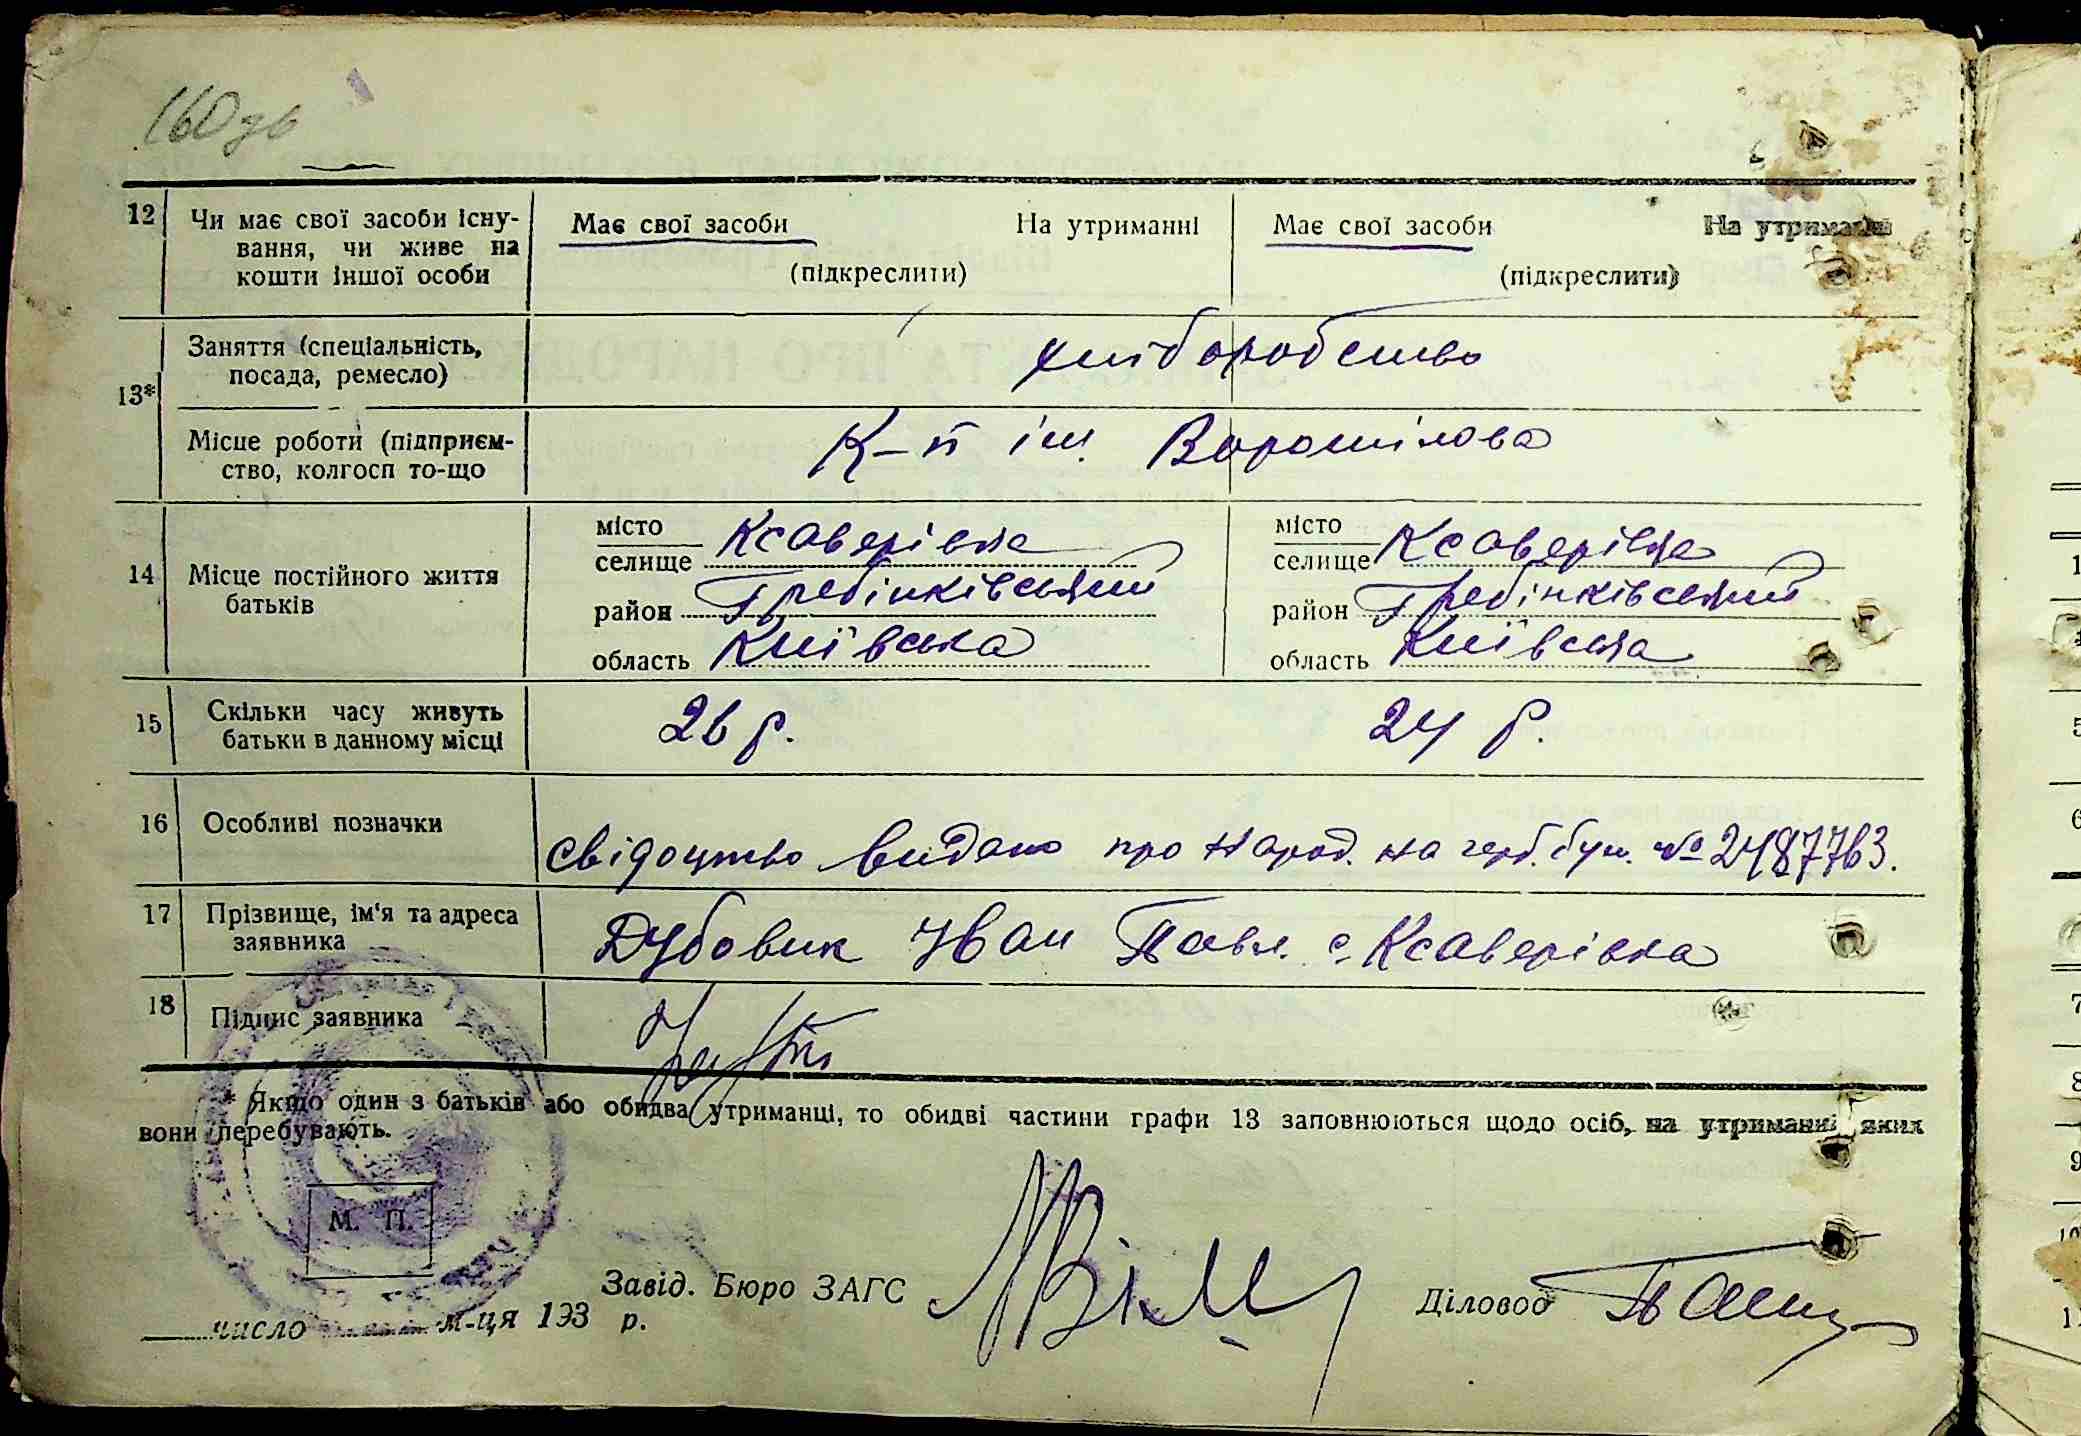 160 зв
12 Чи має свої засоби існу-
вання, чи живе на
кошти іншої особи
Має свої засоби На утриманні
(підкреслити)
Має свої засоби На утриманні
(підкреслити)
13* Заняття (спеціальність,
посада, ремесло)
хліборобство
Місце роботи (підприєм-
ство, колгосп то-що
К-п ім. Ворошілова
14 Місце постійного життя
батьків
місто
селище Ксаверівка
район Гребінківський
область Київська
місто
селище Ксаверівка
район Гребінківський
область Київська
15 Скільки часу живуть
батьки в данному місці
26 р. 24 р.
16 Особливі позначки
свідоцтво видано про народ. на герб. бум. № 2487763.
17 Прізвище, ім'я та адреса
заявника
Дубовик Іван Павл. с. Ксаверівка
18 Підпис заявника
* Якщо один з батьків або обидва утриманці, то обидві частини графи 13 заповнюються щодо осіб, на утриманні яких
вони перебувають.
М. П.
Завід. Бюро ЗАГС
Діловод
число м-ця 193 р.
1
5
6
7
8
9
10